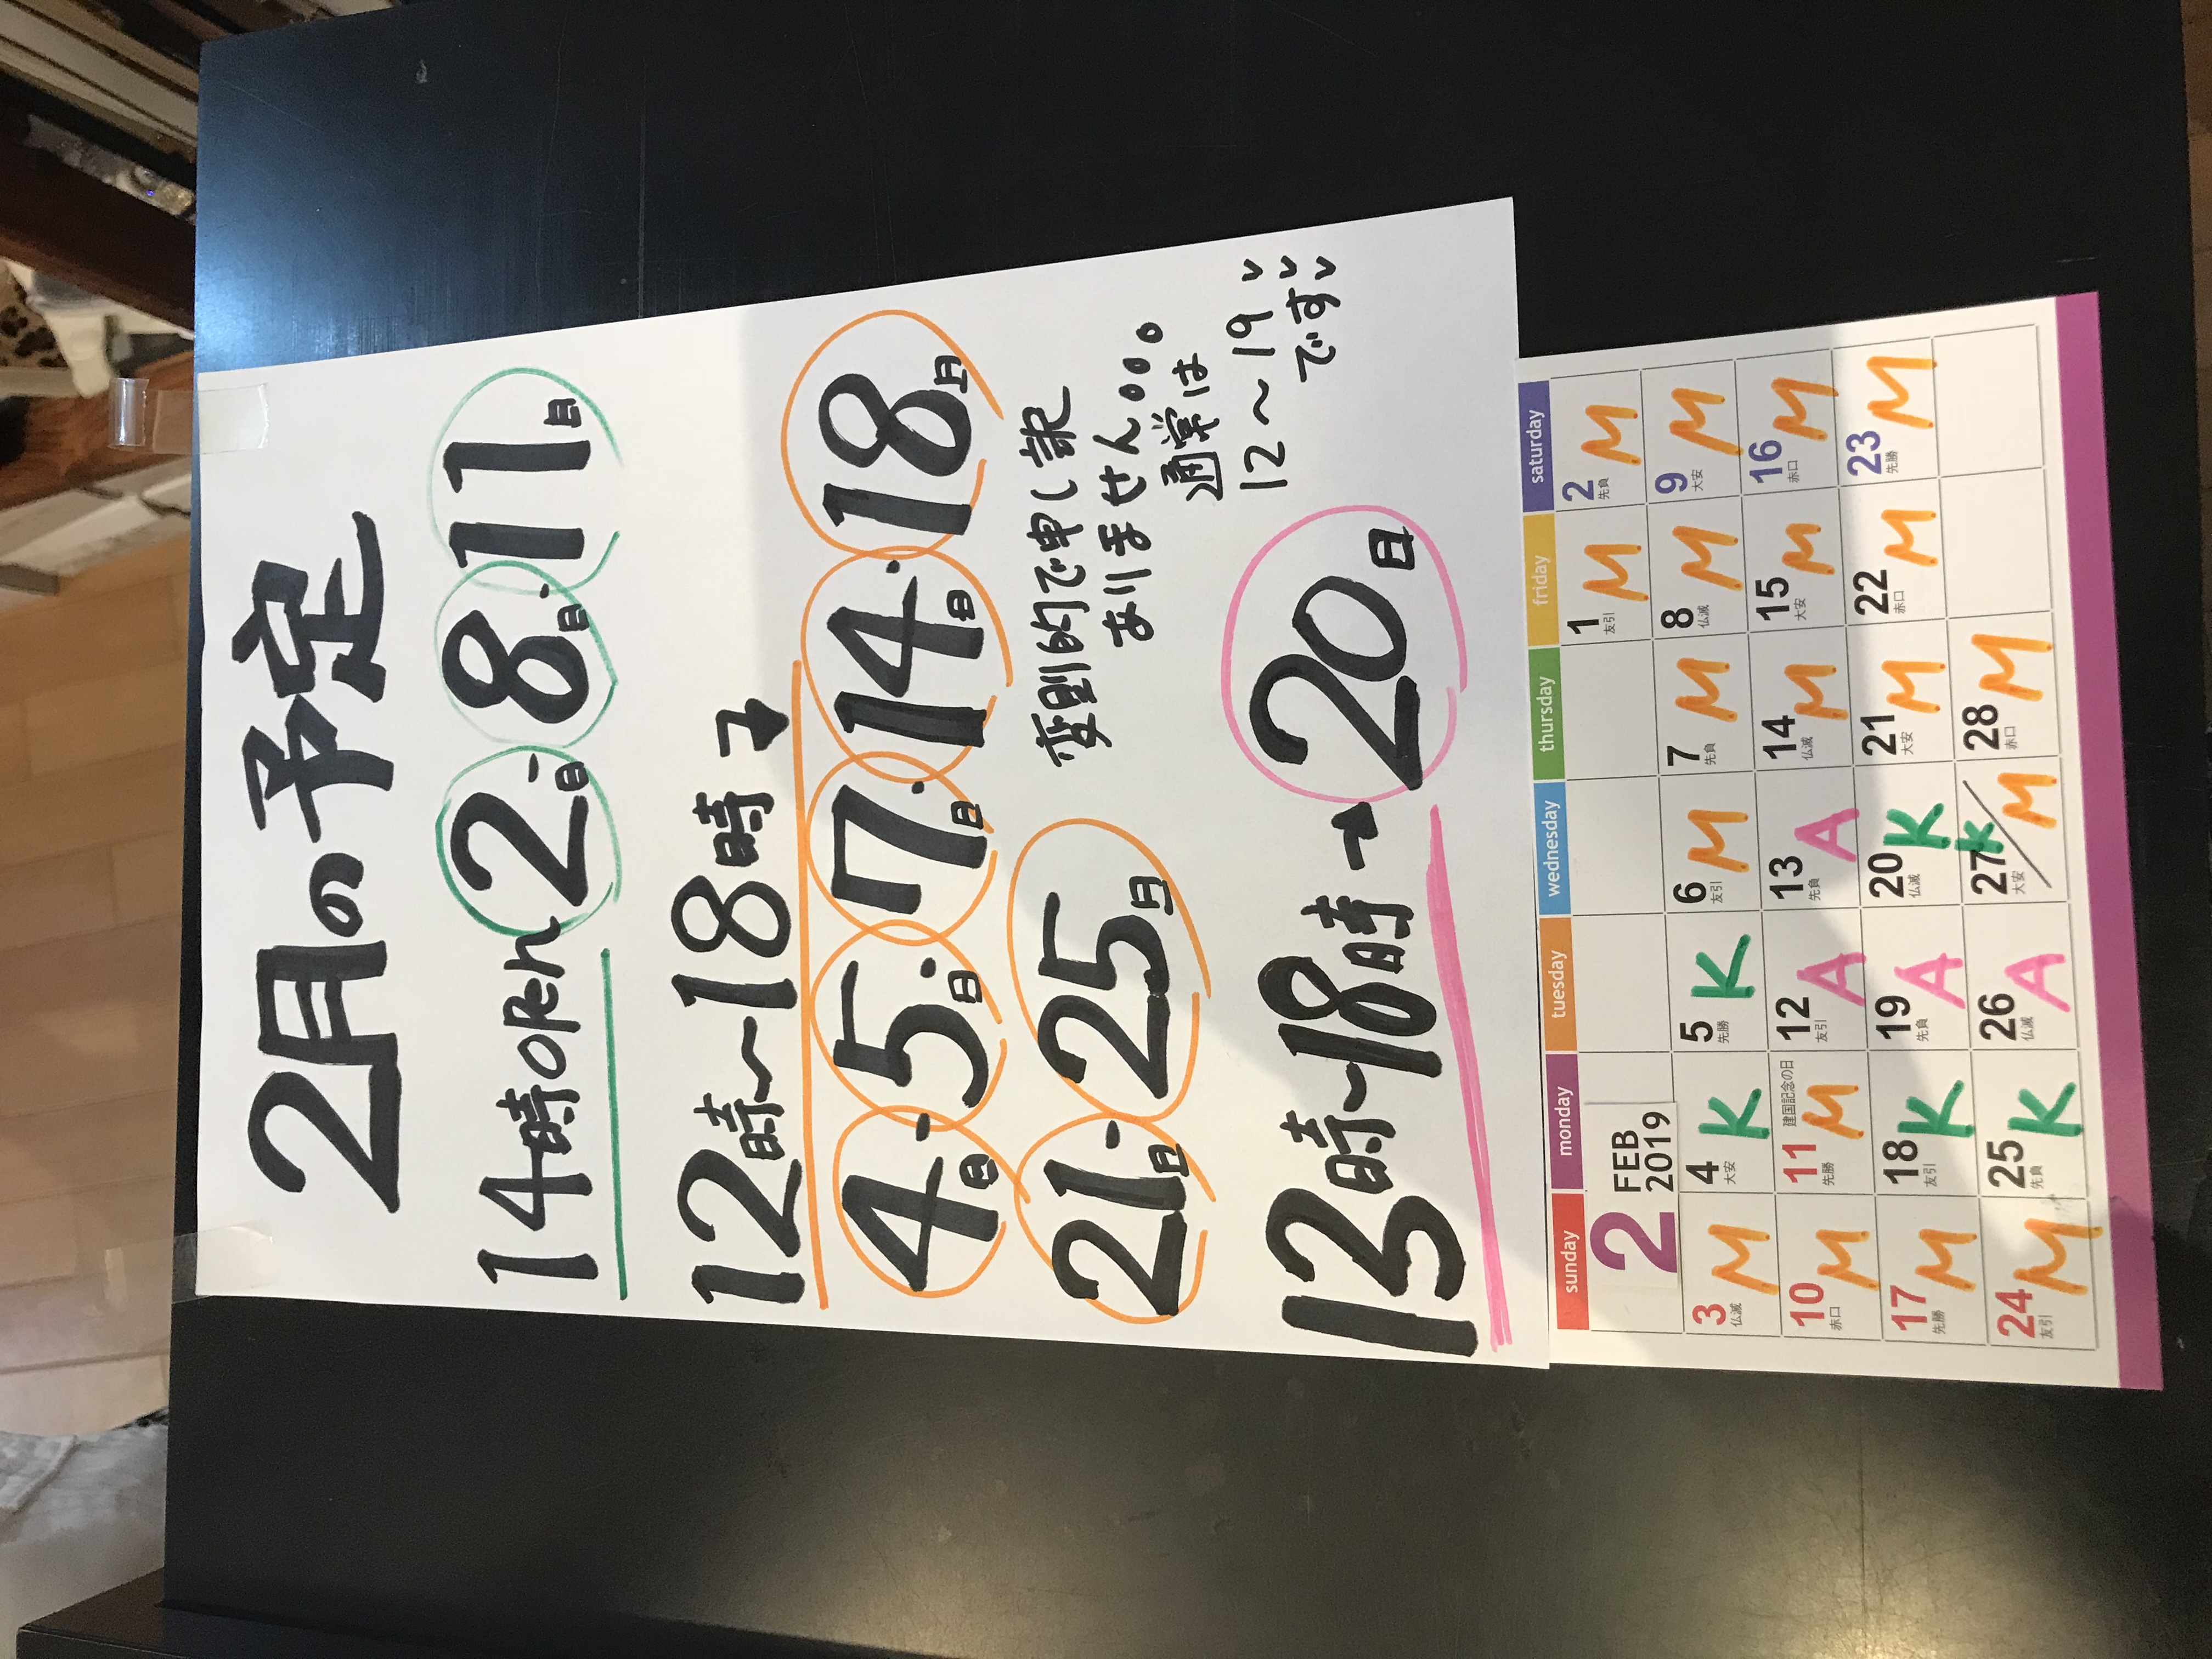 2月の予定
14時open 2日・8日・11日
12時〜18時
4日・5日・7日・14日・18日
21日・25日
変則的で申し訳
ありません。。。
通常は
12〜19
です
13時〜18時→20日
sunday monday tuesday wednesday thursday friday saturday
2 FEB 2019
1 友引 M
2 先負 M
3 仏滅 M
4 大安 K
5 先勝 K
6 友引 M
7 先負 M
8 仏滅 M
9 大安 M
10 赤口 M
11 先勝 建国記念の日 M
12 友引 A
13 先負 A
14 仏滅 M
15 大安 M
16 赤口 M
17 先勝 M
18 友引 K
19 先負 A
20 仏滅 K
21 大安 M
22 赤口 M
23 先勝 M
24 友引 M
25 先負 K
26 仏滅 A
27 大安 K/M
28 赤口 M